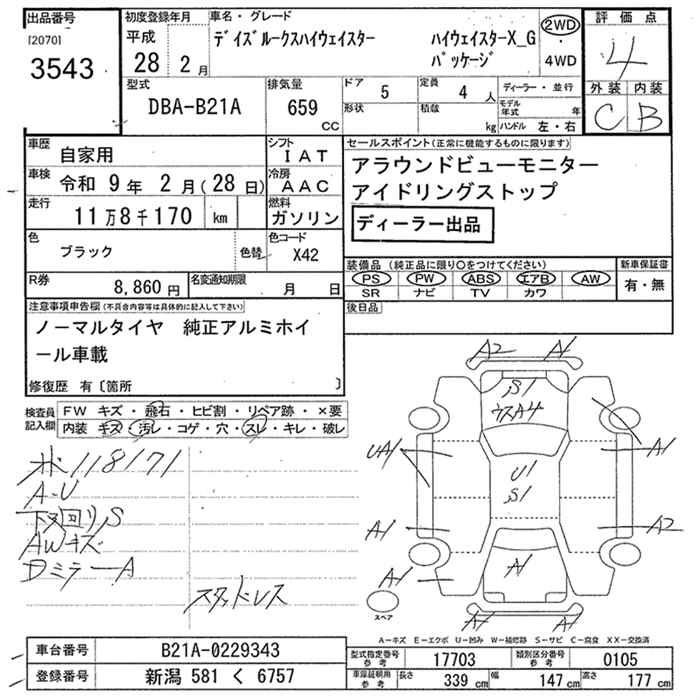 出品番号
[2070]
3543
初度登録年月
平成
28 2月
車名・グレード
デイズルークスハイウェイスター
ハイウェイスターX_G
パッケージ
2WD
・
4WD
評価点
4
外装 内装
C B
型式
DBA-B21A
排気量
659
CC
ドア
5
形状
定員
4人
積載
kg
ディーラー・並行
モデル年式 年
ハンドル 左・右
車歴
自家用
車検 令和 9年 2月(28日)
走行
11万8千170 km
色
ブラック
色替
シフト
IAT
冷房
AAC
燃料
ガソリン
色コード
X42
セールスポイント(正常に機能するものに限ります)
アラウンドビューモニター
アイドリングストップ
ディーラー出品
R券
8,860円
名変通知期限
月 日
装備品(純正品に限り○をつけてください)
PS PW ABS エアB AW
SR ナビ TV カワ
新車保証書
有・無
後日品
注意事項申告欄(不具合内容等は具体的に記入して下さい)
ノーマルタイヤ 純正アルミホイ
ール車載
修復歴 有〔箇所 〕
検査員
記入欄
FW キズ・飛石・ヒビ割・リペア跡・×要
内装 キズ・汚レ・コゲ・穴・スレ・キレ・破レ
ホ118171
A-U
下廻りS
AWキズ
DミラーA
スタッドレス
A2 A1
S1
ウスA4
UA1
A1
U1
S1
A1
A2
A1
A1
A1 A1
スペア
A-キズ E-エクボ U-凹み W-補修跡 S-サビ C-腐食 XX-交換済
車台番号
B21A-0229343
登録番号
新潟 581 く 6757
型式指定番号
参考
17703
類別区分番号
参考
0105
車庫証明用
参考
長さ
339 cm
幅
147 cm
高さ
177 cm